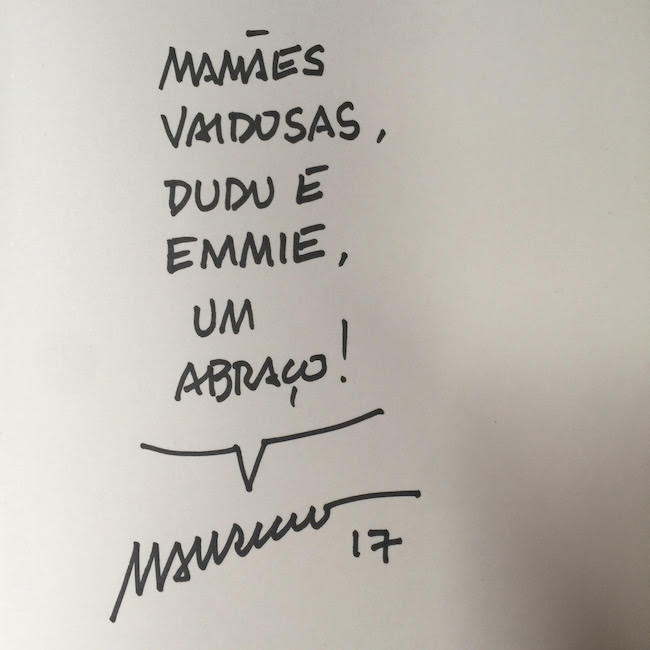 MAMÃES
VAIDOSAS,
DUDU E
EMMIE,
UM
ABRAÇO!
MAURICIO
17